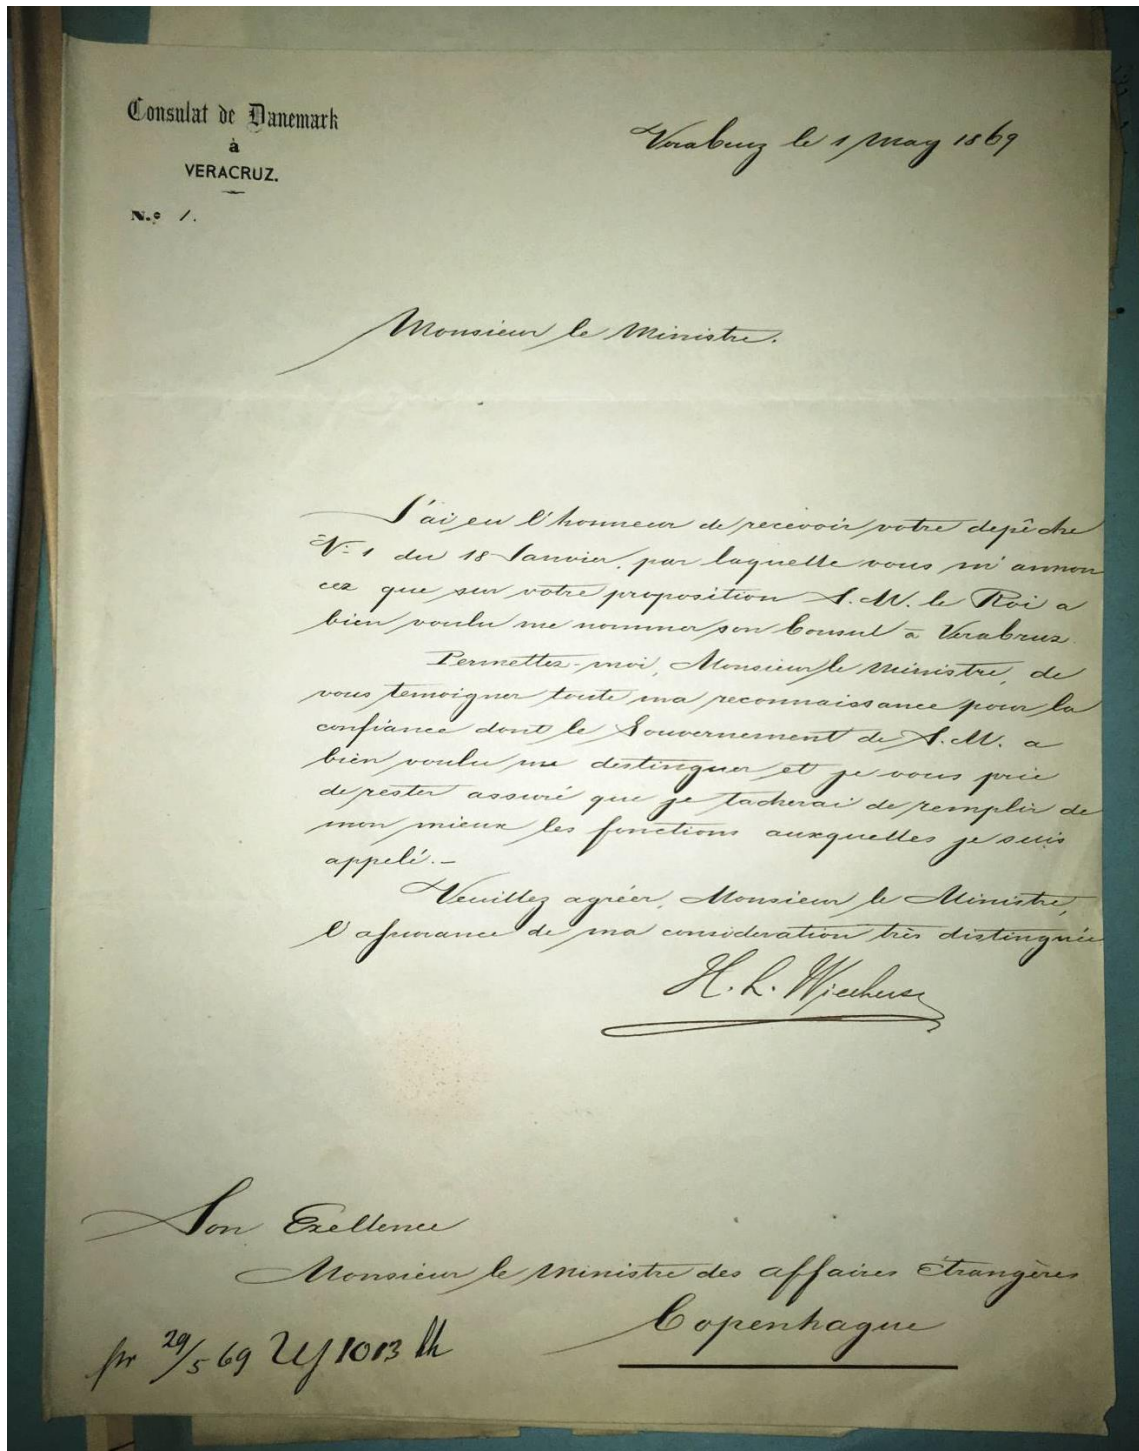 Consulat de Danemark
à
VERACRUZ.
N.º 1.
VeraCruz le 1 May 1869
Monsieur le Ministre.
J'ai eu l'honneur de recevoir votre depêche
Nº 1 du 18 Janvier, par laquelle vous m'annon
cez que sur votre proposition S. M. le Roi a
bien voulu me nommer son Consul à VeraCruz.
Permettez-moi, Monsieur le Ministre, de
vous temoigner toute ma reconnaissance pour la
confiance dont le Gouvernement de S. M. a
bien voulu me destinguer et je vous prie
de rester assuré que je tacherai de remplir de
mon mieux les fonctions auxquelles je suis
appelé.—
Veuillez agréer, Monsieur le Ministre,
l'assurance de ma consideration très distinguée
H. L. Wiechers
Son Exellence
Monsieur le Ministre des affaires étrangères
Copenhague
pr 29/5 69 1013